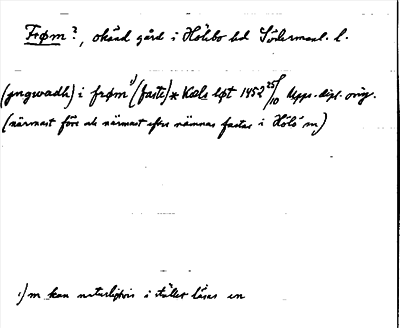 Frøm?, okänd gård i Hölebo hd Södermanl. l.
(yngwadh) i frøm¹⁾ (faste) * Kæla løt 1452 25/10 Upps. dipl. orig.
(närmast före ock närmast efter nämnas fastar i Hölö sn)
¹⁾ m kan naturligtvis i stället läsas in